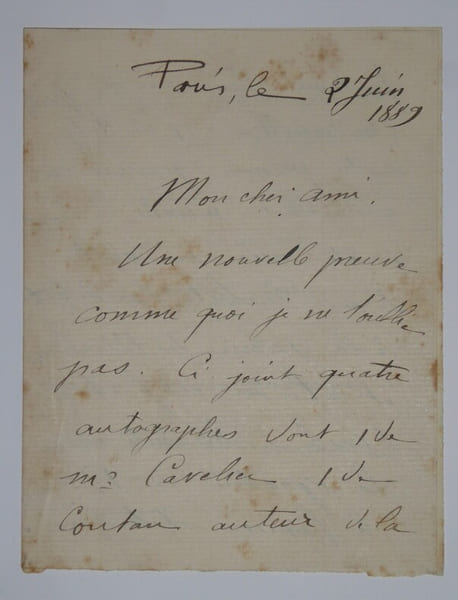 Paris, le 2 Juin
1889
Mon cher ami.
Une nouvelle preuve
comme quoi je ne t'oublie
pas. Ci joint quatre
autographes dont 1 de
Mr Cavelier 1 de
Coutan auteur de la